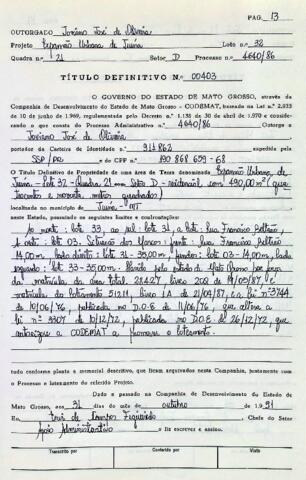 PAG. 13
OUTORGADO Joviano José de Oliveira
Projeto Expansão Urbana de Juína Lote n.o 32
Quadra n.o 21 Setor D Processo n.o 4640/86
TÍTULO DEFINITIVO N.o 00403
O GOVERNO DO ESTADO DE MATO GROSSO, através da
Companhia de Desenvolvimento do Estado de Mato Grosso - CODEMAT, baseado na Lei n.o 2.933
de 10 de junho de 1969, regulamentada pelo Decreto n.o 1.138 de 30 de abril de 1970 e conside-
rando o que consta do Processo Administrativo n.o 4640/86 Outorga a
Joviano José de Oliveira
portador da Carteira de Identidade n.o 914862 expedida pela
SSP/PR e do CPF n.o 190 868 659-68
O Título Definitivo de Propriedade de uma área de Terra denominada Expansão Urbana, de
Juína - Lote 32 - Quadra 21 com Setor D - residencial com 490,00 m² (qua
trocentos e noventa metros quadrados)
localizada no município de Juína - MT
neste Estado, passando os seguintes limites e confrontações:
ao norte: lote 33, ao sul: lote 31, a leste: Rua Francisco Beltrão,
14,00m lado direito: lote 31 - 35,00m, fundos: lote 03 - 14,00m, lado
esquerdo: lote 33 - 35,00m.
matrícula do loteamento 51211, livro
de 10/06/76, publicada no D.O.E de 11/06/76, que altera a
lei nº 3307 de 10/12/72, publicada no D.O.E de 26/12/72, que
autoriza a CODEMAT a promover o loteamento.
tudo conforme planta e memorial descritivo, que ficam arquivados nesta Companhia, juntamente com
o Processo e loteamento do referido Projeto.
Dado e passado na Companhia de Desenvolvimento do Estado de
Mato Grosso, aos 31 dias do mês de outubro de 1991
Eu, Chefe do Setor
Apoio Administrativo o fiz escrever e assino.
Transcrito por Conferido por Visto